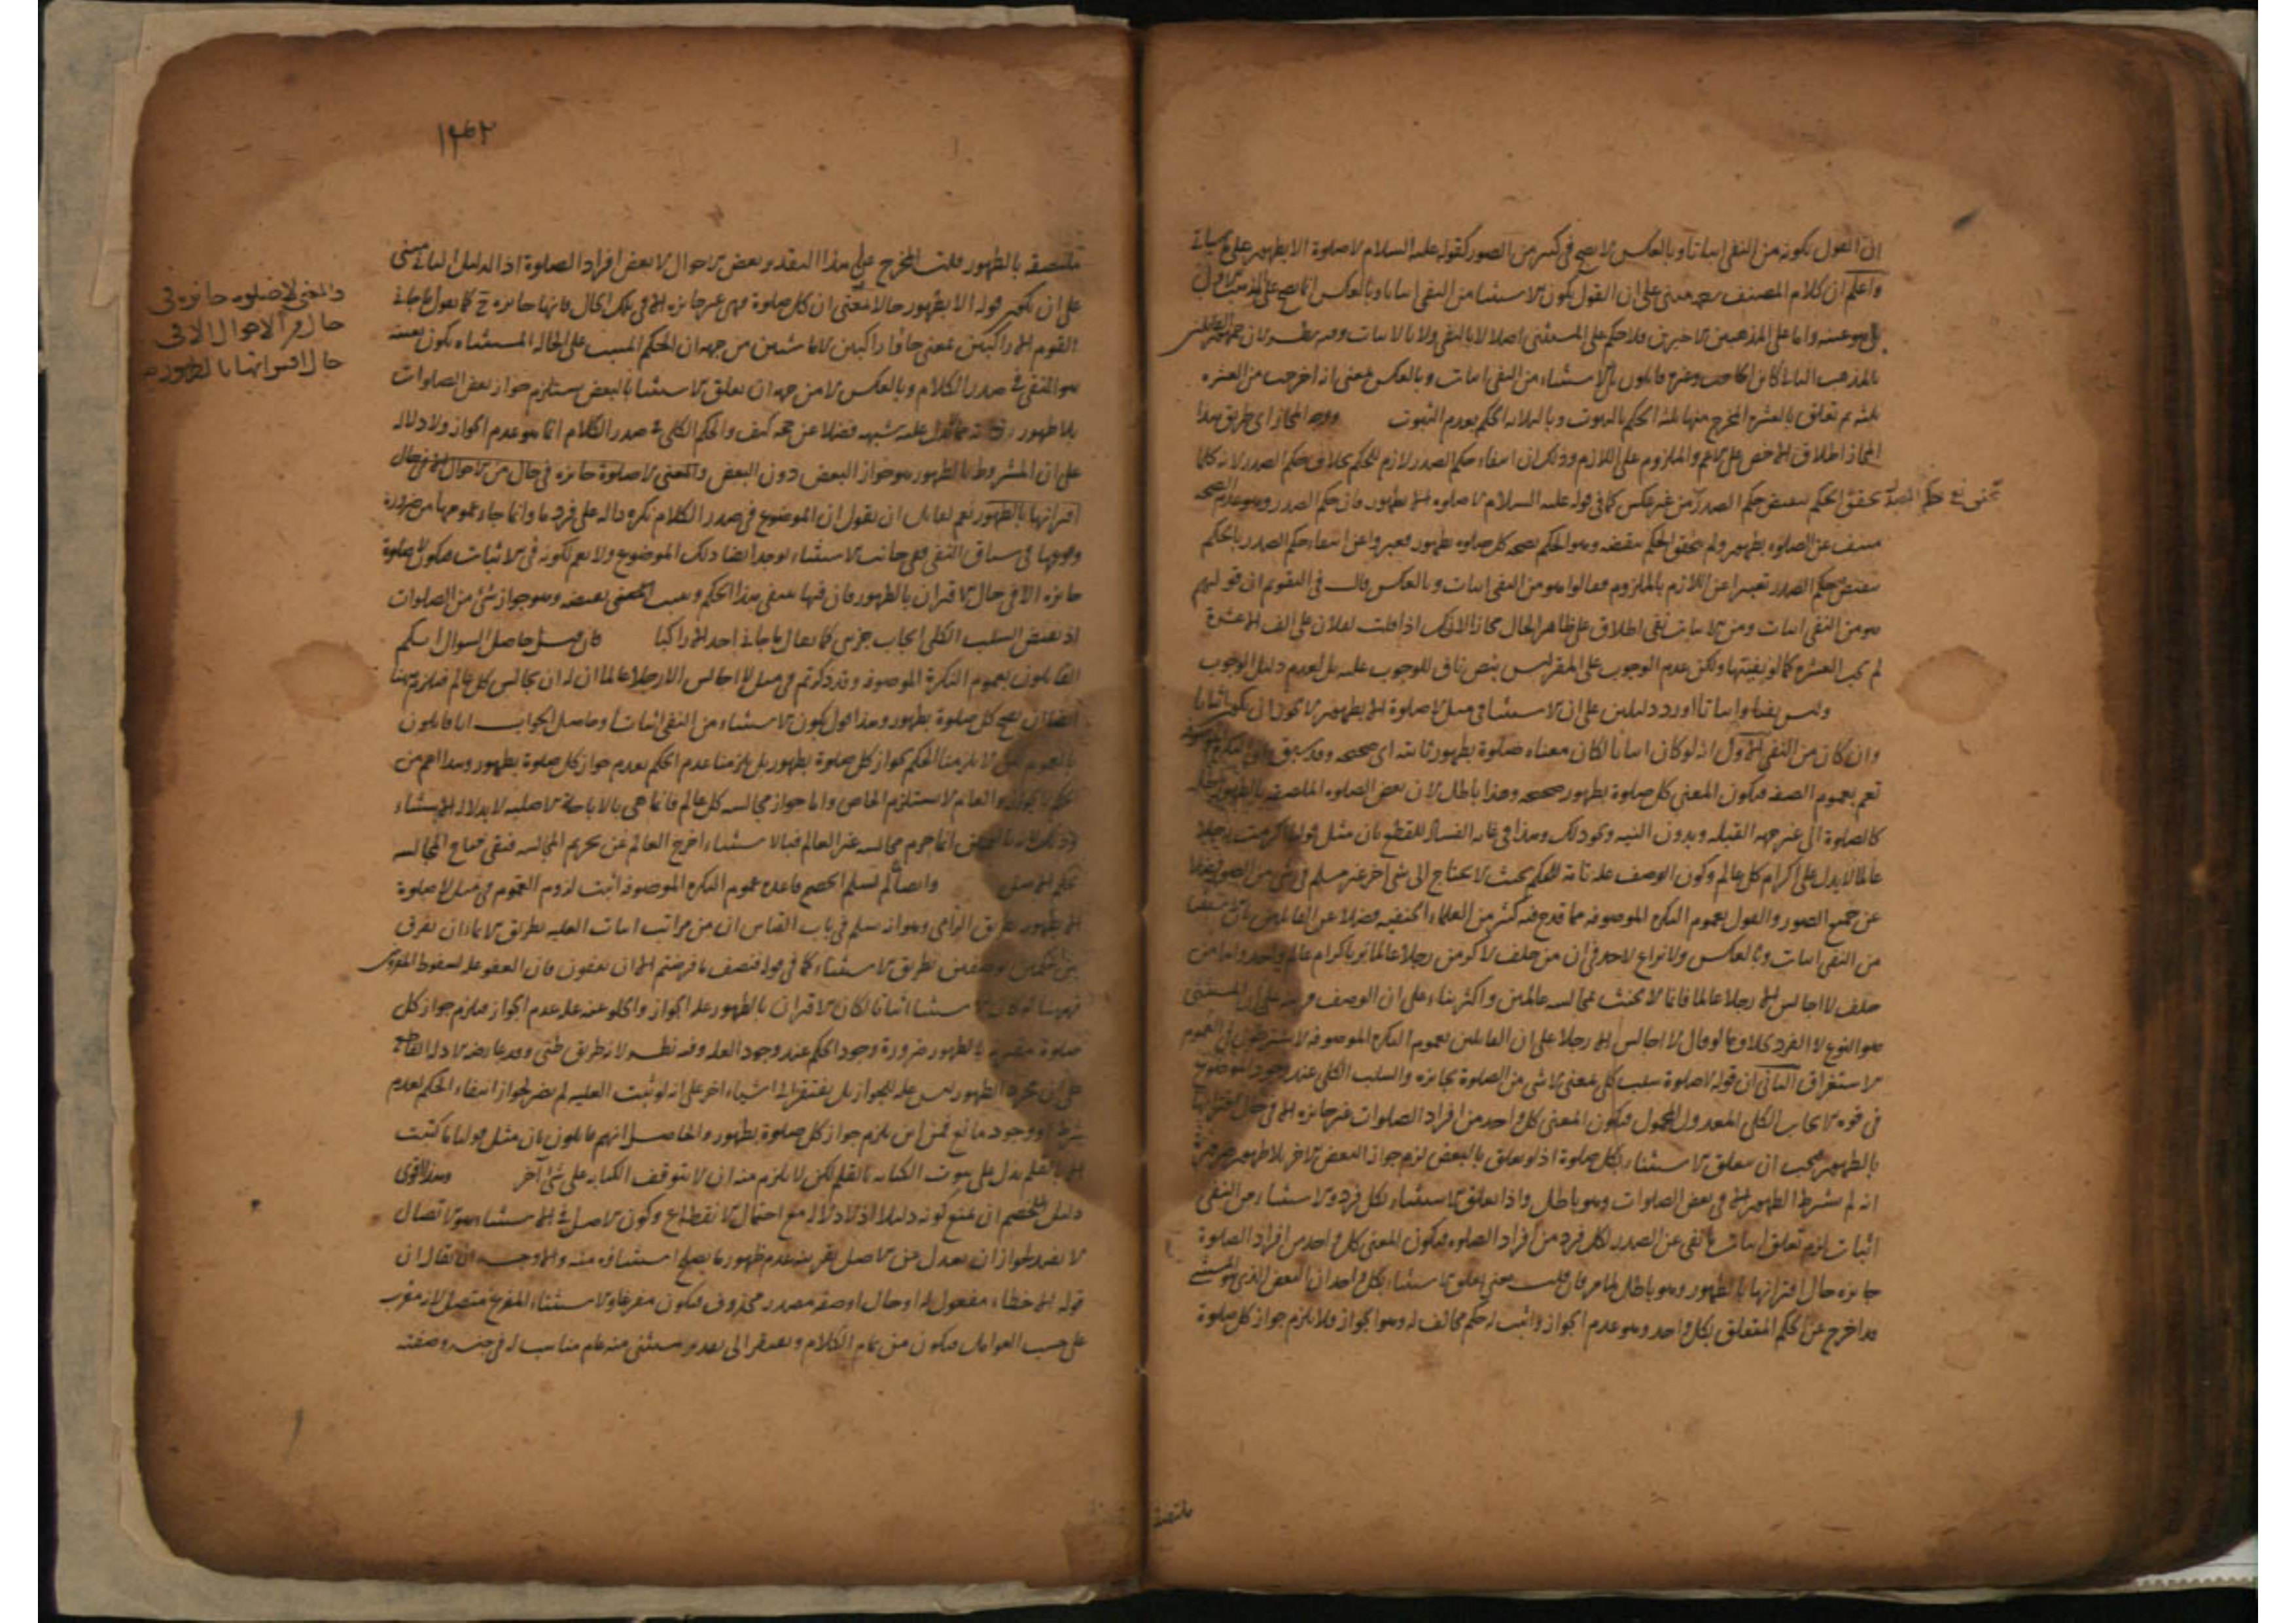 ان القول بكونه من النفي اثباتا وبالعكس لا يصح في كثير من الصور كقوله عليه السلام لا صلوة الا بطهور على ما سياتي
واعلم ان كلام المصنف مبني على ان القول بكون الاستثنا من النفي اثباتا وبالعكس انما يصح على المذهب الاول
واما على المذهبين الاخيرين فلا حكم على المستثنى اصلا لا بالنفي ولا بالاثبات وفيه نظر لان
بالمذهب الثاني كابن الحاجب وغيره قايلون بان الاستثناء من النفي اثبات وبالعكس بمعنى انه اخرجت من العشرة
ثلثة ثم تعلق بالعشرة المخرج منها ثلثة الحكم بالثبوت وبالثلاثة الحكم بعدم الثبوت ووجه المجاز اي طريق هذا
المجاز اطلاق الاخص على الاعم والملزوم على اللازم وذلك ان انتفاء حكم الصدر لازم للحكم بخلاف حكم الصدر لانه كلما
تحقق الحكم بنقيض حكم الصدر من غير عكس كما في قوله عليه السلام لا صلوة الا بطهور فان حكم الصدر وهو عدم الصحة
منتف عن الصلوة بطهور ولم يتحقق الحكم بنقيضه وهو الحكم بصحة كل صلوة بطهور فعبروا عن انتفاء حكم الصدر بالحكم
بنقيض حكم الصدر تعبيرا عن اللازم بالملزوم فقالوا هو من النفي اثبات وبالعكس قال في التقويم ان قولهم
هو من النفي اثبات ومن الاثبات نفي اطلاق على ظاهر الحال مجازا لانك اذا قلت لفلان علي الف الا عشرة
لم يجب العشرة كما لو نفيتها ولكن عدم الوجوب على المقر ليس بنص ناف للوجوب عليه بل لعدم دليل الوجوب
وليس نفيا واثباتا اورد دليلين على ان الاستثنا في مثل لا صلوة الا بطهور لا يجوز ان يكون اثباتا
وان كان من النفي الاول انه لو كان اثباتا لكان معناه صلوة بطهور ثابتة اي صحيحة وقد سبق ان النكرة الموصوفة
تعم بعموم الصفة فيكون المعنى كل صلوة بطهور صحيحة وهذا باطل لان بعض الصلوة الملصقة بالطهور باطلة
كالصلوة الى غير جهة القبلة وبدون النية ونحو ذلك وهذا في غاية الفساد للقطع بان مثل قولنا اكرمت رجلا
عالما لا يدل على اكرام كل عالم وكون الوصف علة تامة للحكم بحيث لا يحتاج الى شي اخر غير مسلم في شي من الصور فضلا
عن جميع الصور والقول بعموم النكرة الموصوفة مما قدح فيه كثير من العلماء الحنفية فضلا عن القايلين بان الاستثنا
من النفي اثبات وبالعكس ولا نزاع لاحد في ان من حلف لاكرمن رجلا عالما بر باكرام عالم واحد واما من
حلف لا اجالس الا رجلا عالما فانما لا يحنث بمجالسة عالمين واكثر بناء على ان الوصف قرينة على ان المستثنى
هو النوع لا الفرد بخلاف ما لو قال لا اجالس الا رجلا على ان القايلين بعموم النكرة الموصوفة لا يشترطون في العموم
الاستغراق الثاني ان قوله لا صلوة سلب كلي بمعنى لا شي من الصلوة بجايزة والسلب الكلي عند وجود الموضوع
في قوة الايجاب الكلي المعدول المحمول فيكون المعنى كل واحد من افراد الصلوات غير جايزة الا في حال اقترانها
بالطهور فيجب ان يتعلق الاستثناء بكل صلوة اذ لو تعلق بالبعض لزم جواز البعض الاخر بلا طهور ضرورة
انه لم يشترط الطهور الا في بعض الصلوات وهو باطل واذا تعلق الاستثناء بكل فرد والاستثناء من النفي
اثبات لزم تعلق اثبات ما نفي عن الصدر لكل فرد من افراد الصلوة فيكون المعنى كل واحد من افراد الصلوة
جايزة حال اقترانها بالطهور وهو باطل لما مر فان قلت معنى تعلق الاستثناء بكل واحد ان البعض الذي هو المستثنى
قد اخرج عن الحكم المتعلق بكل واحد وهو عدم الجواز واثبت له حكم مخالف له وهو الجواز فلا يلزم جواز كل صلوة
ملتصقة
١٣٤٢
ملتصقة بالطهور قلت المخرج على هذا التقدير بعض الاحوال لا بعض افراد الصلوة اذ الدليل الثاني مبني
على ان يكون قوله الا بطهور حالا بمعنى ان كل صلوة فهي غير جايزة الا في تلك الحال فانها جايزة ح كما يقول ما جاءني
القوم الا راكبين بمعنى جاؤا راكبين لا ماشين من جهة ان الحكم المثبت على الحالة المستثناة يكون بعينه
هو المنفي في صدر الكلام وبالعكس لا من جهة ان تعلق الاستثنا بالبعض يستلزم جواز بعض الصلوات
بلا طهور شبهة فضلا عن حجة كيف والحكم الكلي في صدر الكلام انما هو عدم الجواز ولا دلالة
على ان المشروط بالطهور هو جواز البعض دون البعض والمعنى لا صلوة جايزة في حال من الاحوال الا في حال
اقترانها بالطهور نعم لقايل ان يقول ان الموضوع في صدر الكلام نكرة دالة على فرد ما وانما جاء عمومها من ضرورة
وقوعها في سياق النفي ففي جانب الاستثناء يوجد ايضا ذلك الموضوع ولا يعم لكونه في الاثبات فيكون لا صلوة
جايزة الا في حال الاقتران بالطهور فان فيها ينتفي هذا الحكم ويثبت نقيضه وهو جواز شئ من الصلوات
اذ نقيض السلب الكلي ايجاب جزئي كما يقال ما جاءني احد الا راكبا فان قيل حاصل السوال انكم
القايلون بعموم النكرة الموصوفة وقد ذكرتم في مثل لا اجالس الا رجلا عالما ان له ان يجالس كل عالم فيلزم ههنا
ايضا ان يصح كل صلوة بطهور وهذا قول بكون الاستثناء من النفي اثباتا وحاصل الجواب انا قايلون
بالعموم لا يلزمنا الحكم بجواز كل صلوة بطهور بل يلزمنا عدم الحكم بعدم جواز كل صلوة بطهور وهذا اعم من
الحكم بالجواز والعام لا يستلزم الخاص واما جواز مجالسة كل عالم فانما هي بالاباحة الاصلية لا بدلالة الاستثناء
انما حرم مجالسة غير العالم فبالاستثناء اخرج العالم عن تحريم المجالسة فبقي مباح المجالسة
بحكم الاصل وايضا لم يسلم الخصم قاعدة عموم النكرة الموصوفة اثبت لزوم العموم في مثل لا صلوة
الا بطهور بطريق الزامي وهو انه سلم في باب القياس ان من مراتب اثبات العلية بطريق الايماء ان يفرق
بين حكمين بوصفين بطريق الاستثناء كما في قوله فنصف ما فرضتم الا ان يعفون فان العفو علة لسقوط المفروض
فههنا لو كان الاستثنا اثباتا لكان الاقتران بالطهور علة الجواز والخلو عنه علة عدم الجواز فيلزم جواز كل
صلوة مقترنة بالطهور ضرورة وجود الحكم عند وجود العلة وفيه نظر لانه طريق ظني وقد عارضه الادلة القاطعة
على ان مجرد الطهور ليس علة للجواز بل يفتقر الى اشياء اخر على انه لو ثبت العلية لم يضر لجواز انتفاء الحكم لعدم
شرط او وجود مانع فمن اين يلزم جواز كل صلوة بطهور والحاصل انهم قايلون بان مثل قولنا ما كتبت
الا بالقلم يدل على ثبوت الكتابة بالقلم لكن لا يلزم منه ان لا يتوقف الكتابة على شئ آخر وهذا اقوى
دليل للخصم ان يمنع كونه دليلا اذ لا دلالة مع احتمال الانقطاع وكون الاصل في الاستثناء هو الاتصال
لا يضر لجواز ان يعدل عن الاصل بقرينة عدم ظهور ما يصلح استثناؤه منه والاوجه ان يقال ان
قوله الا خطاء مفعول له او حال او صفة مصدر محذوف فيكون مفرغا والاستثناء المفرغ متصل لانه معرب
على حسب العوامل فيكون من تمام الكلام ويفتقر الى تقدير مستثنى منه عام مناسب له في جنسه وصفته
والمعنى لا صلوة جايزة في
حال من الاحوال الا في
حال اقترانها بالطهور